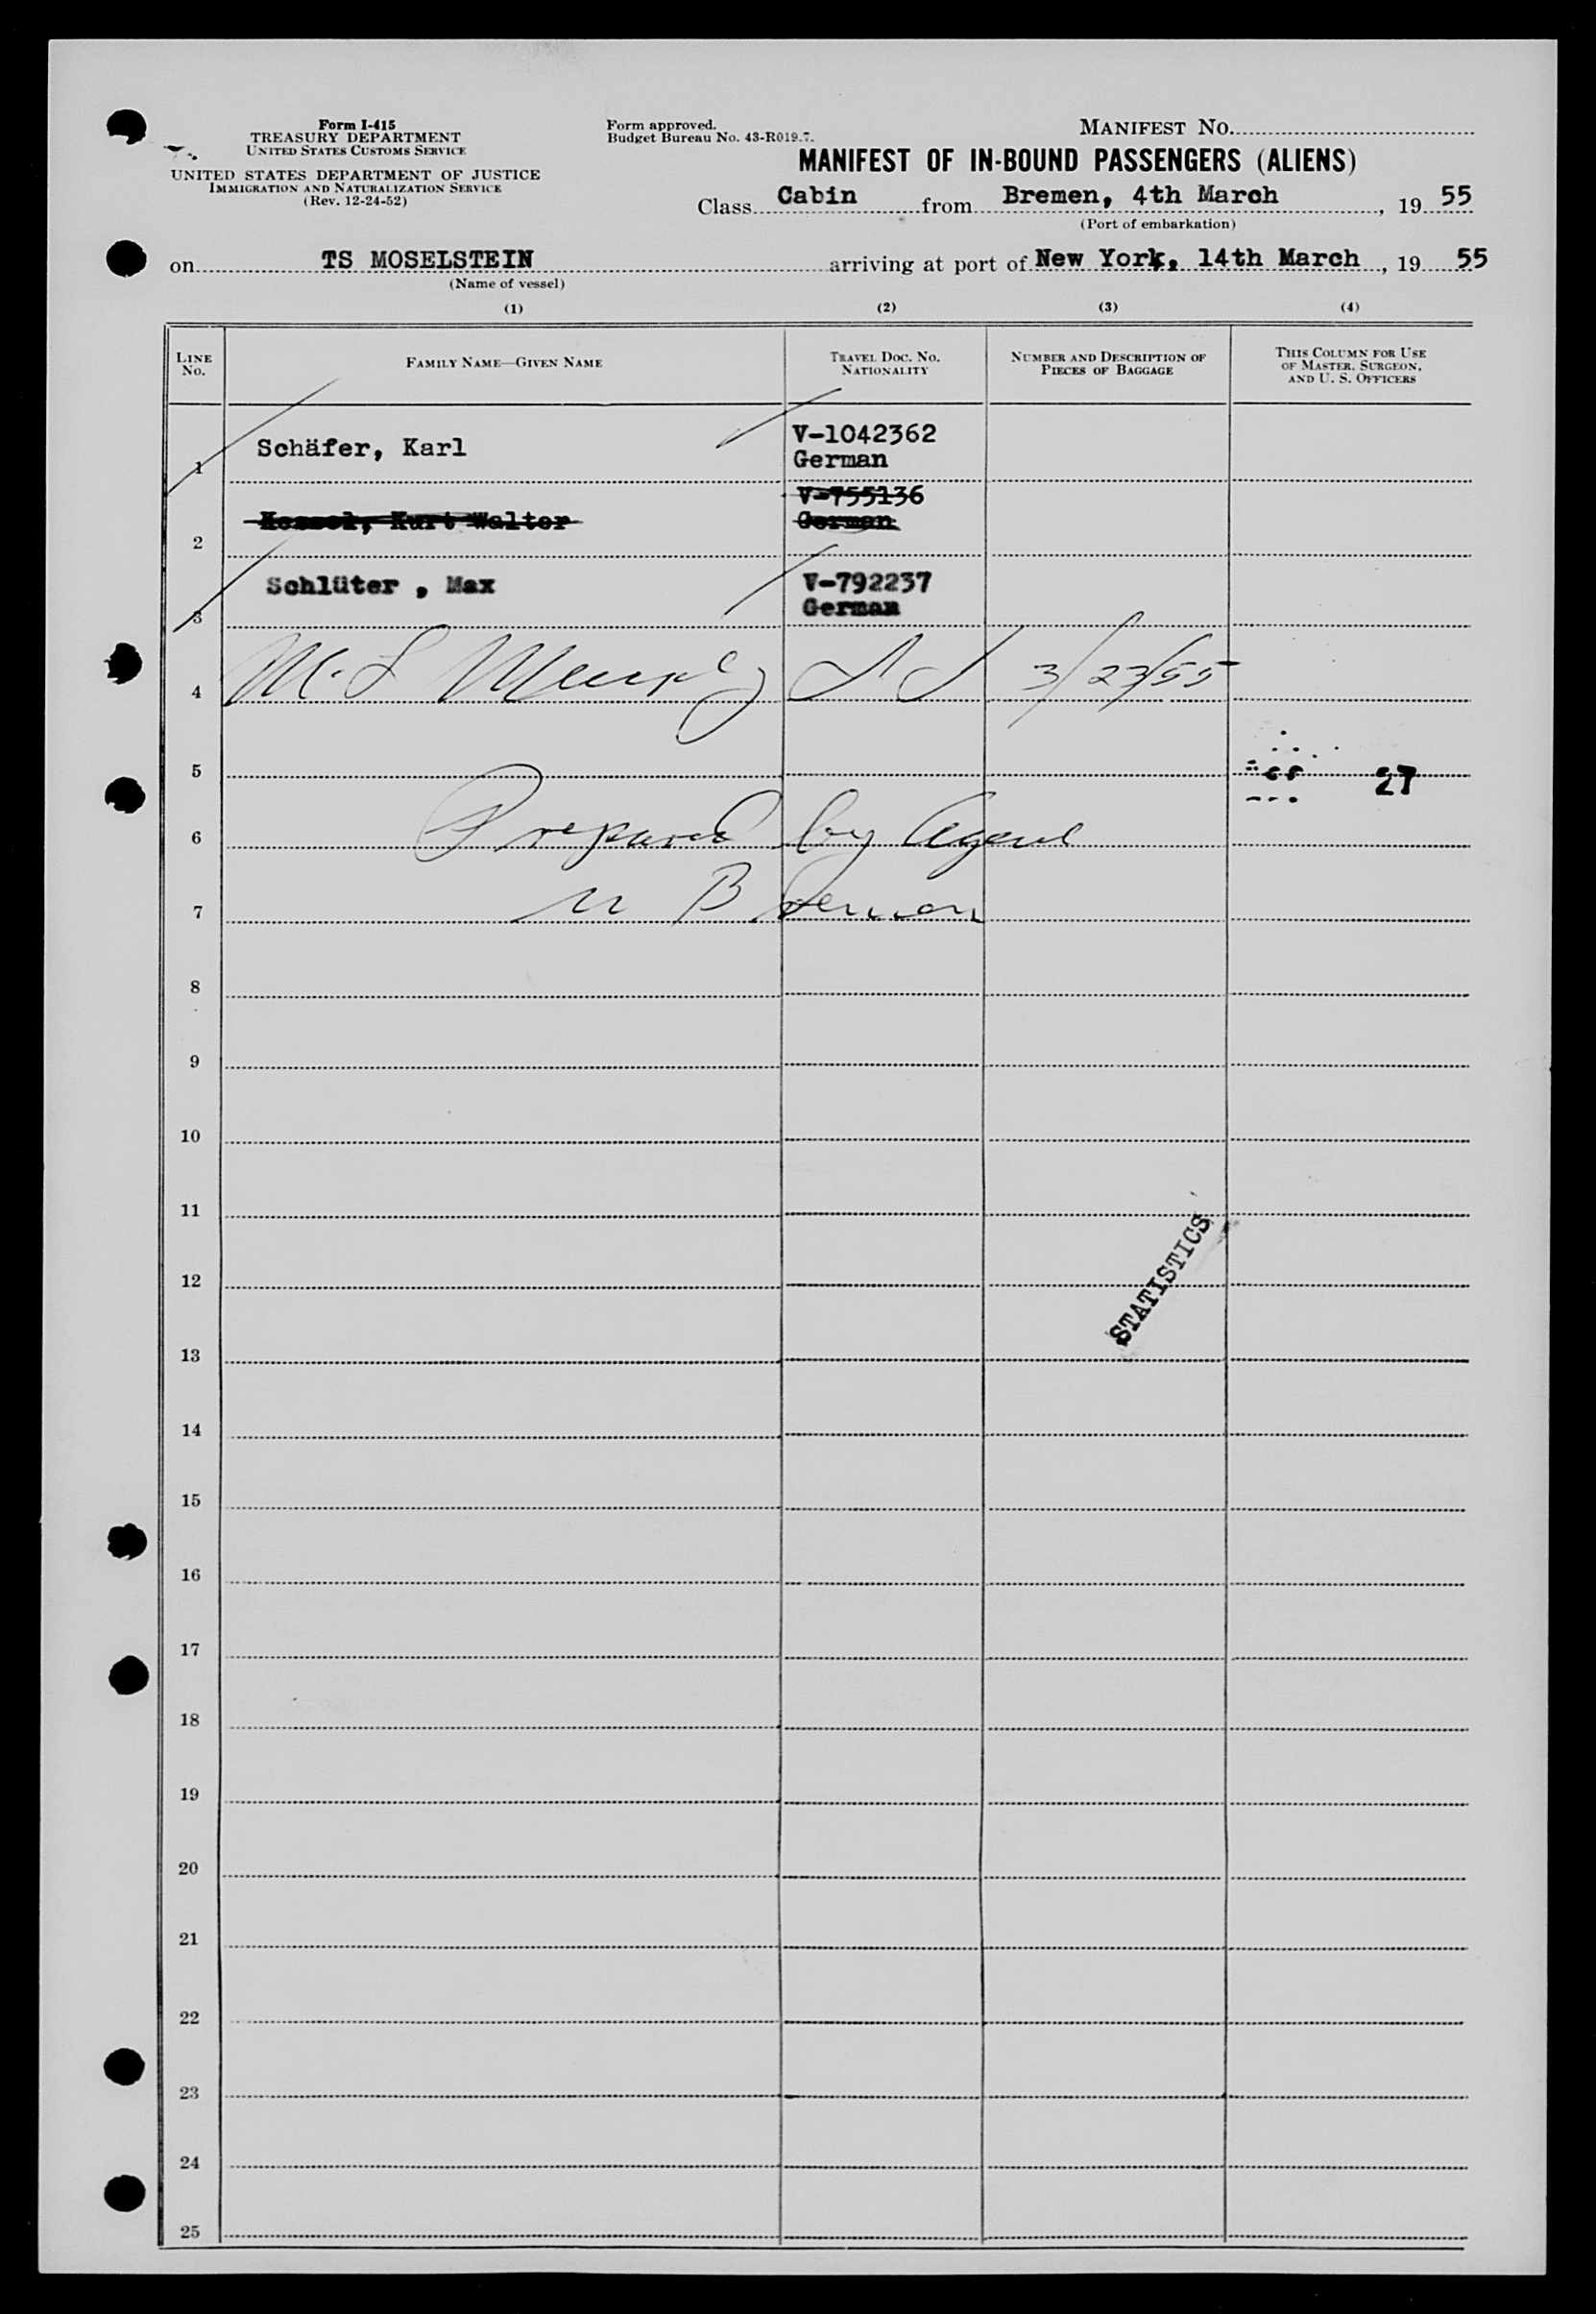 Form I-415
TREASURY DEPARTMENT
UNITED STATES CUSTOMS SERVICE
UNITED STATES DEPARTMENT OF JUSTICE
IMMIGRATION AND NATURALIZATION SERVICE
(Rev. 12-24-52)
Form approved.
Budget Bureau No. 43-R019.7.
MANIFEST NO.
MANIFEST OF IN-BOUND PASSENGERS (ALIENS)
Class Cabin from Bremen, 4th March, 19 55
(Port of embarkation)
on TS MOSELSTEIN arriving at port of New York, 14th March, 19 55
(Name of vessel)
(1) (2) (3) (4)
LINE NO.
FAMILY NAME—GIVEN NAME
TRAVEL DOC. NO.
NATIONALITY
NUMBER AND DESCRIPTION OF
PIECES OF BAGGAGE
THIS COLUMN FOR USE
OF MASTER, SURGEON,
AND U. S. OFFICERS
1 Schäfer, Karl V-1042362
German
2 Kurt Walter V-755136
German
3 Schlüter , Max V-792237
German
4 M. L 3/23/55
5 27
6 Prepared by Agent
7
8
9
10
11
STATISTICS
12
13
14
15
16
17
18
19
20
21
22
23
24
25